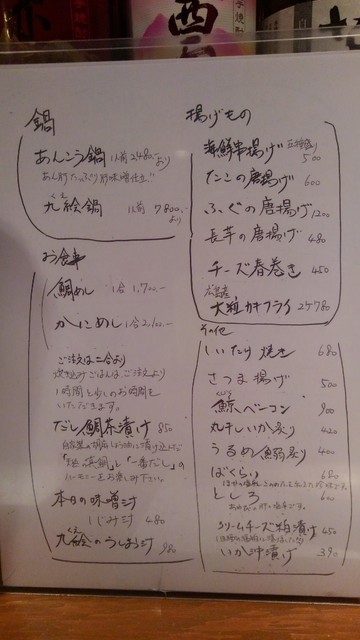 鍋
あんこう鍋 1人前 2480.-より
あん肝たっぷり 肝味噌仕立
九絵鍋 1人前 7800.-より
お食事
鯛めし 1合 1,700.-
かにめし 1合 2,100.-
ご注文は二合より
炊き込みごはんは、ご注文より
1時間と少しのお時間を
いただきます。
だし鯛茶漬け 850
「一番だし」の
ハーモニーをお楽しみ下さい。
本日の味噌汁
しじみ汁 480
九絵のうしお汁 980
揚げもの
海鮮串揚げ 500
たこの唐揚げ 600
ふぐの唐揚げ 1200
長芋の唐揚げ 480
チーズ春巻き 450
広島産
大粒カキフライ 2ケ 780
その他
しいたけ焼き 680
さつま揚げ 500
くじら
鯨ベーコン 900
丸干しいか炙り 420
うるめ鰯炙り 400
ばくらい 680
としろ 600
クリームチーズ粕漬け 450
いか沖漬け 390